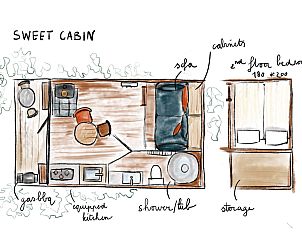 SWEET CABIN
cabinets
sofa
2nd floor bedroom
180 x 200
gas bbq
equipped
kitchen
shower/tub
storage